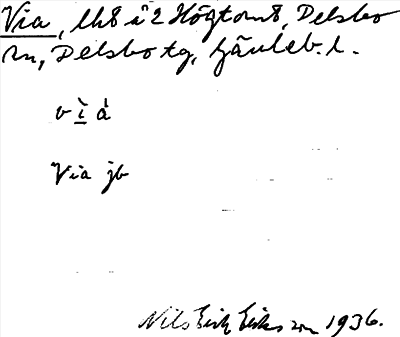 Via, lh8 i 2 Högtomt, Delsbo
sn, Delsbo tg, Gävleb. l.
v ì̲ à
Via jb
Nils Erik Eriksson 1936.